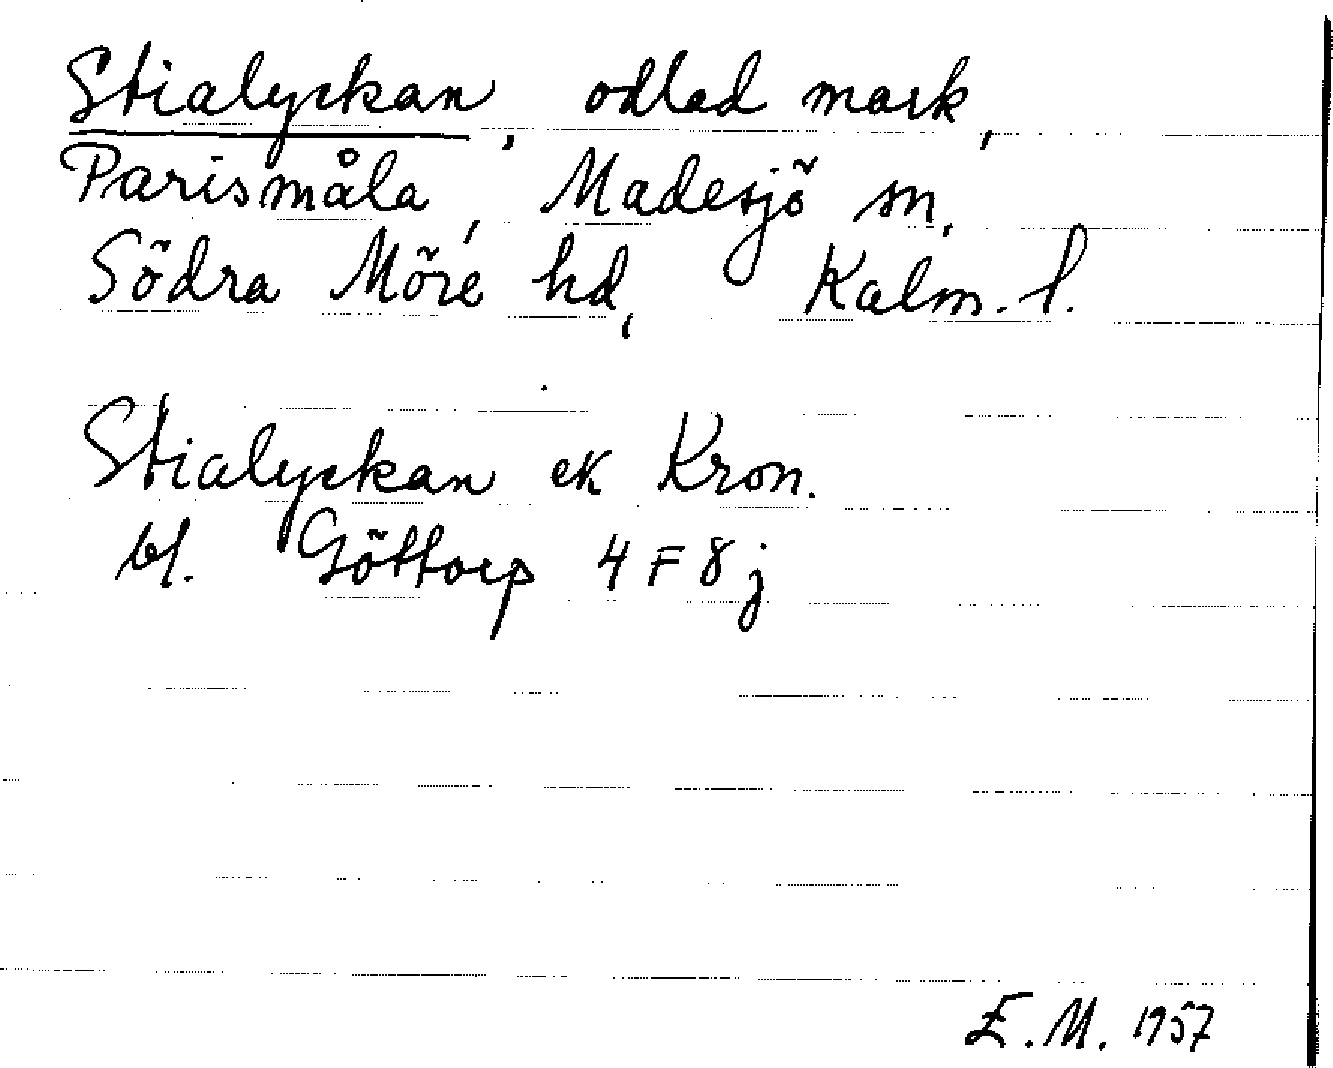 Stialyckan, odlad mark,
Parismåla, Madesjö sn,
Södra Möre hd, Kalm. l.
Stialyckan ek Kron.
bl. Göttorp 4 F 8 j
E. M. 1957